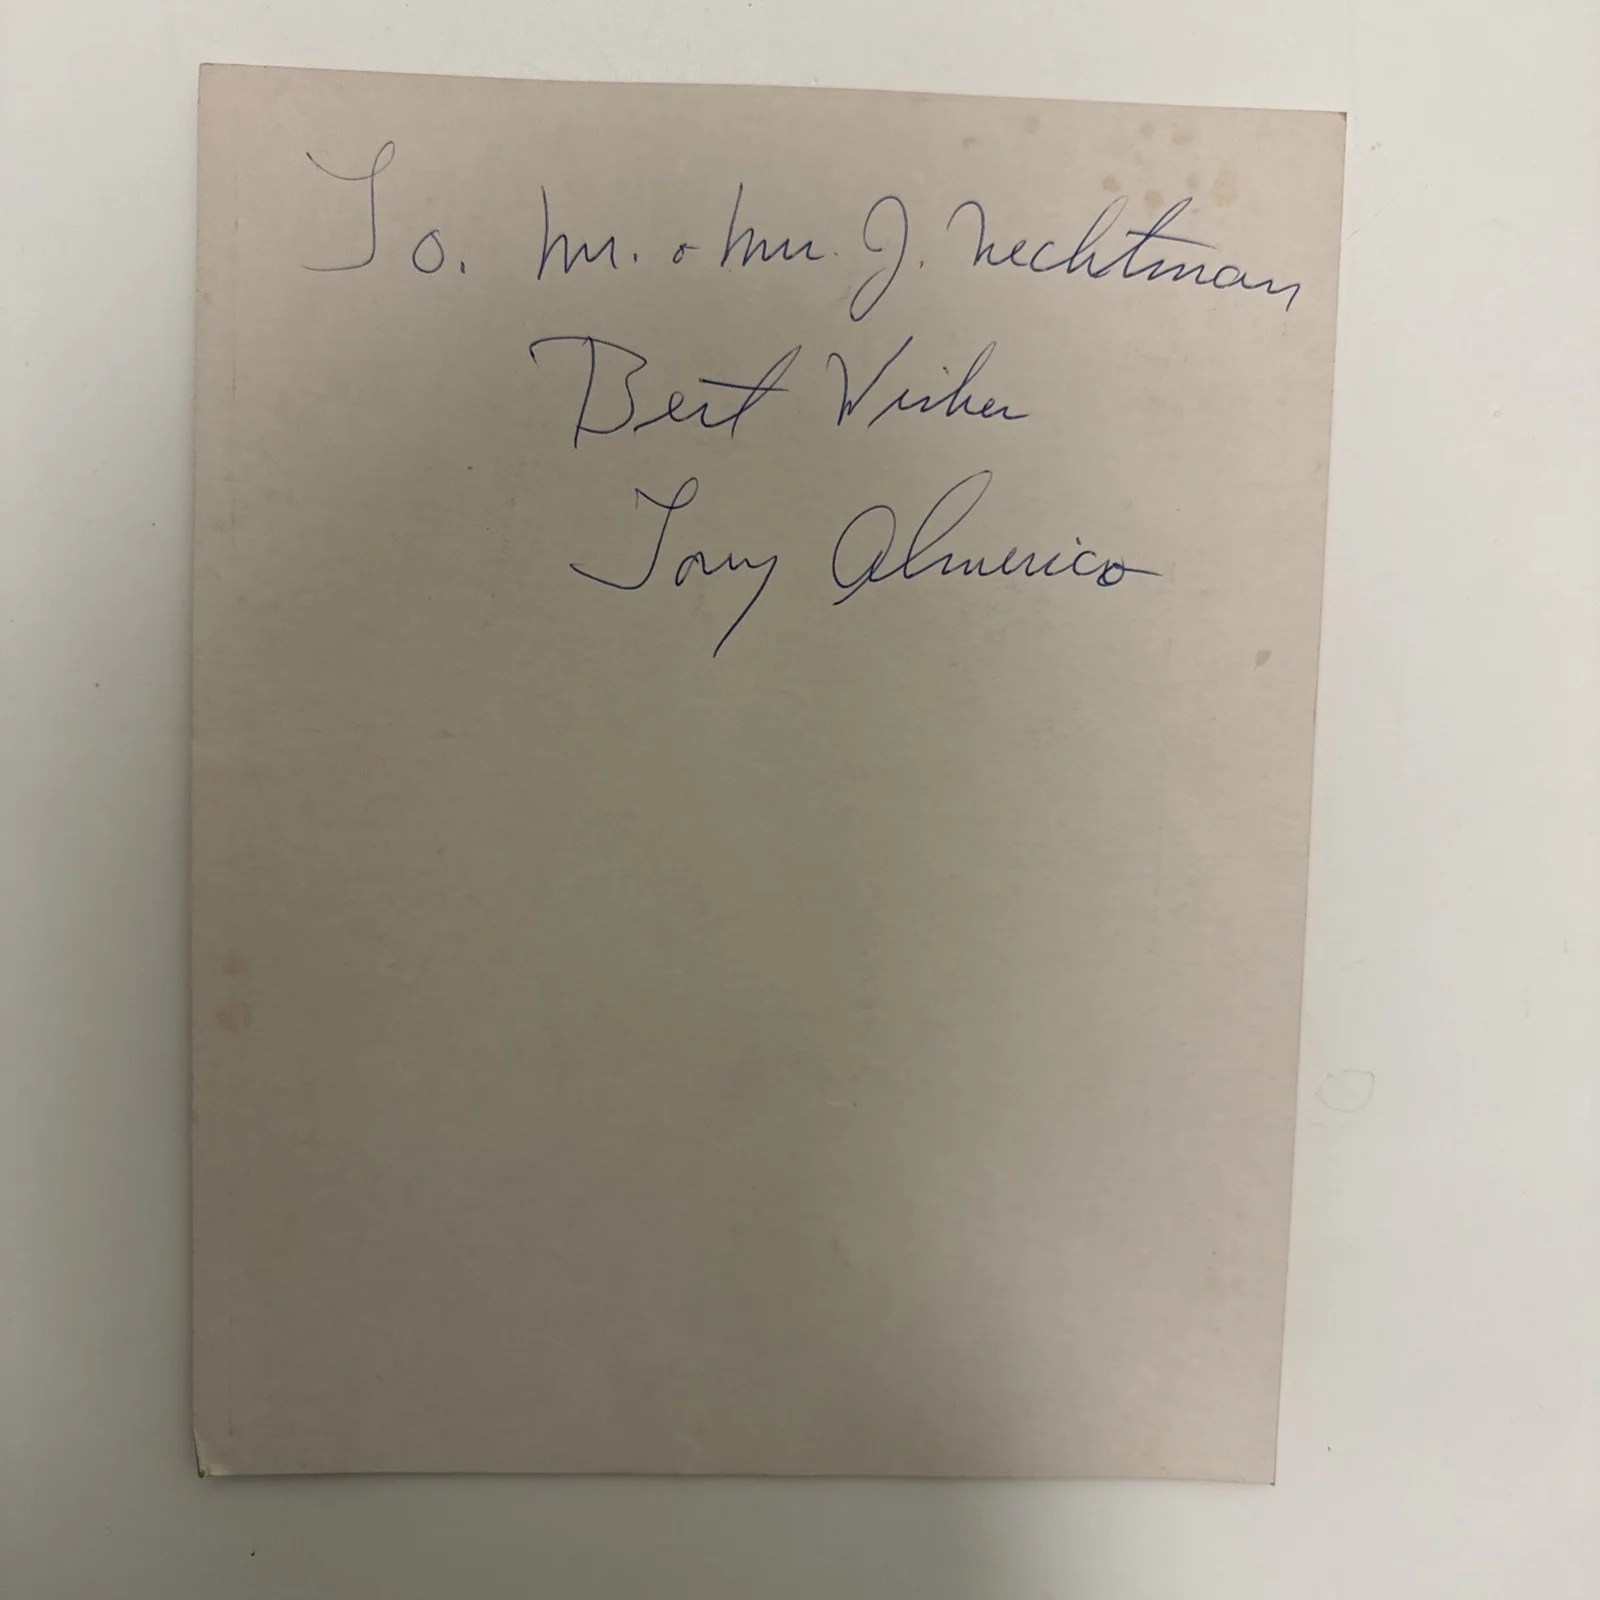 To. Mr. & Mrs. J. Nechtman
Best Wishes
Tony Almerico